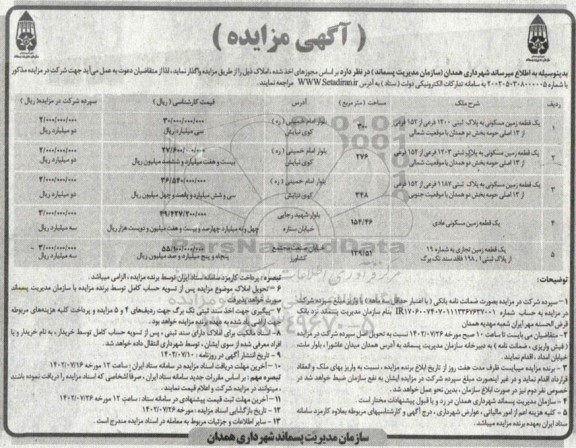 ( آگهی مزایده )
بدینوسیله به اطلاع میرساند شهرداری همدان (سازمان مدیریت پسماند) در نظر دارد بر اساس مجوزهای اخذ شده، املاک ذیل را از طریق مزایده واگذار نماید، لذا از متقاضیان دعوت به عمل می آید جهت شرکت در مزایده مذکور
با شماره ۲۰۰۲۰۵۰۳۰۸۰۰۰۰۰۵ به سامانه تدارکات الکترونیکی دولت (ستاد) به آدرس WWW.Setadiran.ir مراجعه نمایند.
ردیف شرح ملک مساحت (متر مربع) آدرس قیمت کارشناسی (ریال) سپرده شرکت در مزایده( ریال )
۱ یک قطعه زمین مسکونی به پلاک ثبتی ۱۲۰۰ فرعی از ۱۵۲ فرعی از ۱۳ اصلی حومه بخش دو همدان با موقعیت شمالی ۳۰۰ بلوار امام خمینی (ره) کوی نیایش ۳۰/۰۰۰/۰۰۰/۰۰۰ سی میلیارد ریال ۲/۰۰۰/۰۰۰/۰۰۰ دو میلیارد ریال
۲ یک قطعه زمین مسکونی به پلاک ثبتی ۱۲۰۳ فرعی از ۱۵۲ فرعی از ۱۳ اصلی حومه بخش دو همدان با موقعیت شمالی ۲۷۶ بلوار امام خمینی (ره) کوی نیایش ۲۷/۶۰۰/۰۰۰/۰۰۰ بیست و هفت میلیارد و ششصد میلیون ریال ۲/۰۰۰/۰۰۰/۰۰۰ دو میلیارد ریال
۳ یک قطعه زمین مسکونی به پلاک ثبتی ۱۱۸۷ فرعی از ۱۵۲ فرعی از ۱۳ اصلی حومه بخش دو همدان با موقعیت جنوبی ۳۴۸ بلوار امام خمینی (ره) کوی نیایش ۳۶/۵۴۰/۰۰۰/۰۰۰ سی و شش میلیارد و پانصد و چهل میلیون ریال ۲/۰۰۰/۰۰۰/۰۰۰ دو میلیارد ریال
۴ یک قطعه زمین مسکونی عادی ۱۵۴/۴۶ بلوار شهید رجایی خیابان ستاره ۴۹/۴۲۷/۲۰۰/۰۰۰ چهل و نه میلیارد چهارصد و بیست و هفت میلیون و دویست هزار ریال ۳/۰۰۰/۰۰۰/۰۰۰ سه میلیارد ریال
۵ یک قطعه زمین تجاری به شماره ۱۹ از پلاک ثبتی ۱۹۸۰۱ فاقد سند تک برگ ۱۴۹/۵۱ کشاورز ۵۵/۱۰۰/۰۰۰/۰۰۰ پنجاه و پنج میلیارد و صد میلیون ریال ۳/۰۰۰/۰۰۰/۰۰۰ سه میلیارد ریال
توضیحات:
۱- سپرده شرکت در مزایده بصورت ضمانت نامه بانکی (با اعتبار حداقل سه ماهه) یا واریز مبلغ سپرده شرکت
در مزایده به حساب شماره
قرض الحسنه مهر ایران شعبه مهدیه همدان
۲- متقاضیان می بایست تا ساعت ۱۰ صبح مورخه ۱۴۰۲/۰۷/۲۶ نسبت به تحویل اصل سپرده شرکت در مزایده
(فیش واریزی، ضمانت نامه) به دبیرخانه سازمان مدیریت پسماند به آدرس همدان میدان عاشورا، بلوار ملت،
خیابان امداد، اقدام نمایند.
۳- برنده مزایده میبایست ظرف مدت هفت روز از تاریخ ابلاغ برنده مزایده، نسبت به واریز بهای ملک و انعقاد
قرارداد اقدام نماید و در غیر اینصورت مبلغ سپرده شرکت در مزایده ایشان به نفع سازمان ضبط خواهد شد در
خصوص نفر دوم نیز در صورت ابلاغ سازمان، بدین نحو عمل خواهد شد.
۴- سازمان مدیریت پسماند شهرداری همدان در رد و یا قبول پیشنهادات مختار است.
۵- کلیه هزینه اعم از امور مالیاتی، عوارض شهرداری، درج آگهی و کارشناسیهای مربوطه بعلاوه کارمزد سامانه
ستاد ایران بعهده برنده مزایده میباشد.
تبصره: پرداخت کارمزد سامانه ستاد ایران توسط برنده مزایده، الزامی میباشد.
۶- تحویل املاک موضوع مزایده پس از تسویه حساب کامل توسط برنده مزایده با سازمان مدیریت پسماند
صورت خواهد پذیرفت.
۷- پیگیری جهت اخذ سند ثبتی تک برگ جهت ردیفهای ۴ و ۵ مزایده و پرداخت کلیه هزینه‌های مربوطه
جهت اراضی یاد شده به عهده برنده مزایده خواهد بود.
۸- اسناد مالکیت برای املاک دارای سند ثبتی، پس از تسویه حساب کامل توسط خریدار، به نام خریدار و یا
افراد معرفی شده از سوی ایشان، توسط شهرداری انتقال داده خواهد شد.
۹- تاریخ انتشار آگهی در روزنامه: ۱۴۰۲/۰۷/۱۰
۱۰- آخرین مهلت دریافت اسناد مزایده در سامانه ستاد ایران: ساعت ۱۲ مورخه ۱۴۰۲/۰۷/۱۶
تبصره مهم: بر اساس مقررات جدید سامانه ستاد ایران، صرفاً اشخاصی که اسناد مزایده را دریافت نموده باشند
میتوانند در مزایده شرکت و اعلام قیمت نمایند.
۱۱- آخرین مهلت ثبت قیمت پیشنهادی در سامانه ستاد: ساعت ۱۲ مورخه ۱۴۰۲/۰۷/۲۶
۱۲- تاریخ بازگشایی اسناد مزایده: مورخه ۱۴۰۲/۰۷/۲۶
۱۳- سایر اطلاعات و جزئیات مربوط به معامله در اسناد مزایده مندرج است.
سازمان مدیریت پسماند شهرداری همدان